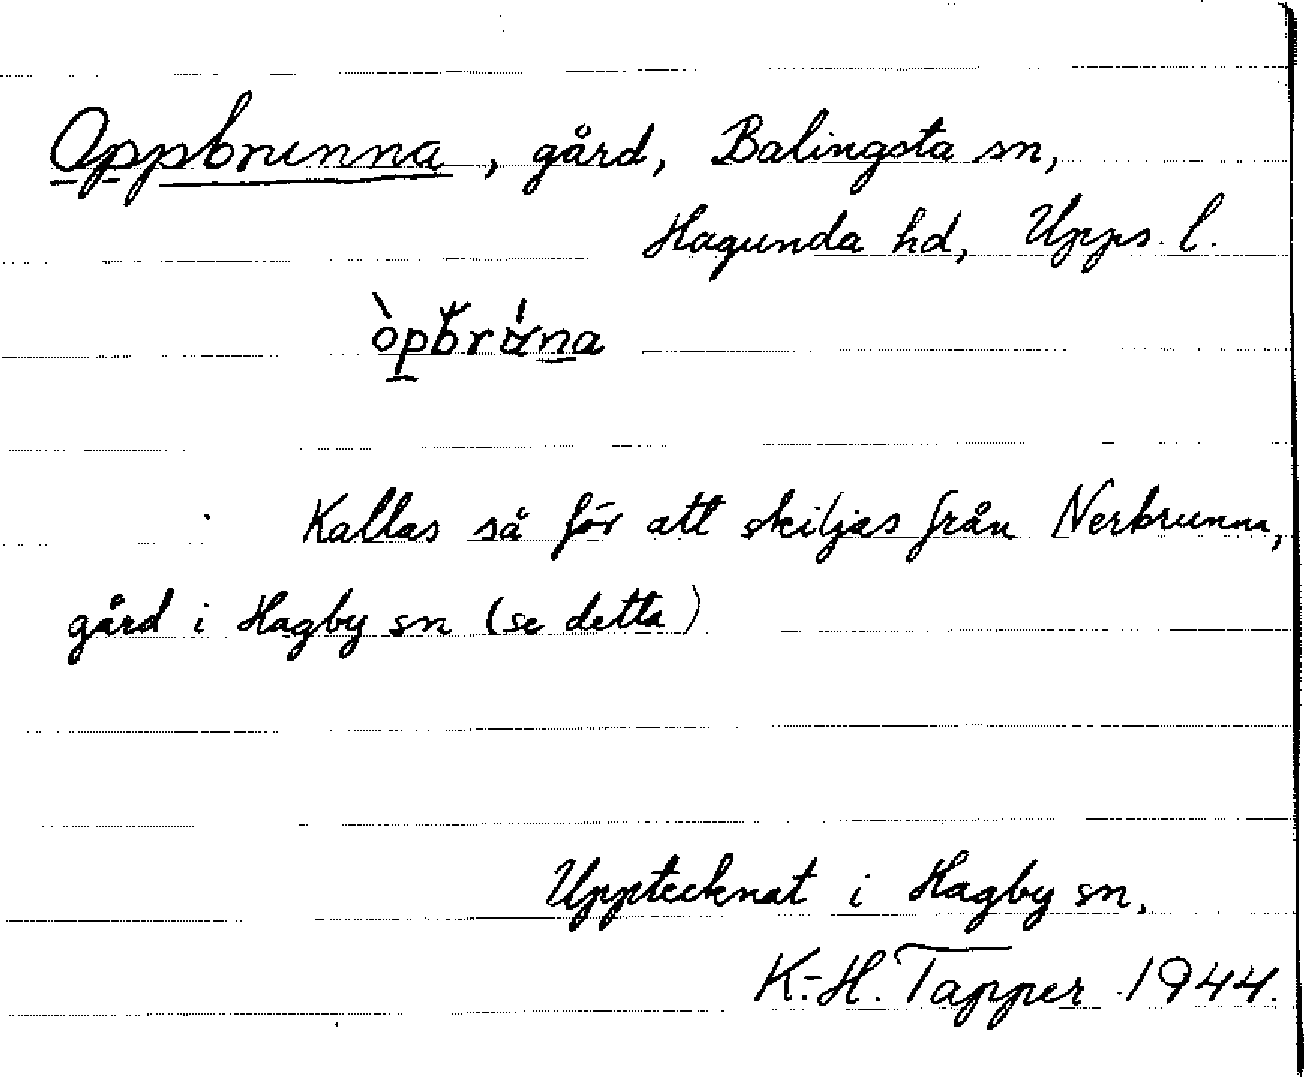 Oppbrunna, gård, Balingsta sn,
Hagunda hd, Upps. l.
Kallas så för att skiljas från Nerbrunna,
gård i Hagby sn (se detta)
Upptecknat i Hagby sn.
K.-H. Tapper 1944.